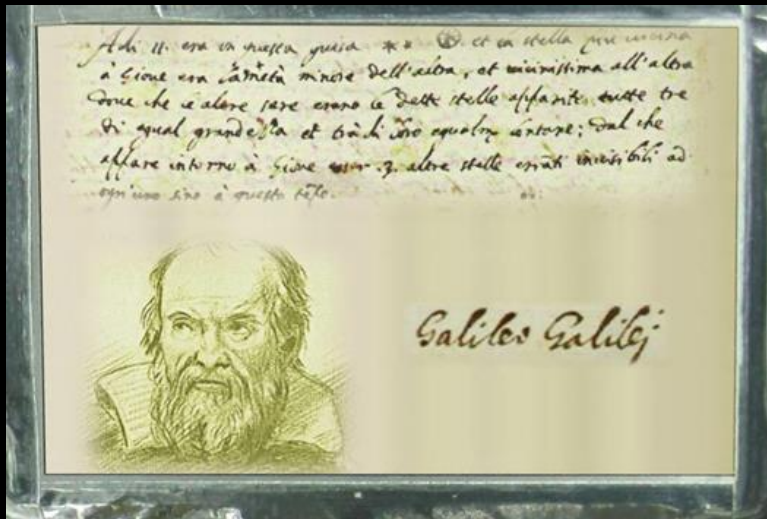 Adi 11. era in questa guisa ** et la stella più vicina
à Giove era la metà minore dell'altra, et vicinissima all'altra
dove che le altre sere erano le dette stelle apparite tutte tre
di egual grandezza et trà di loro egualm lontane; dal che
appare intorno à Giove esser .3. altre stelle erranti invisibili ad
ogn'uno sino à questo tēpo.
Galileo Galilej